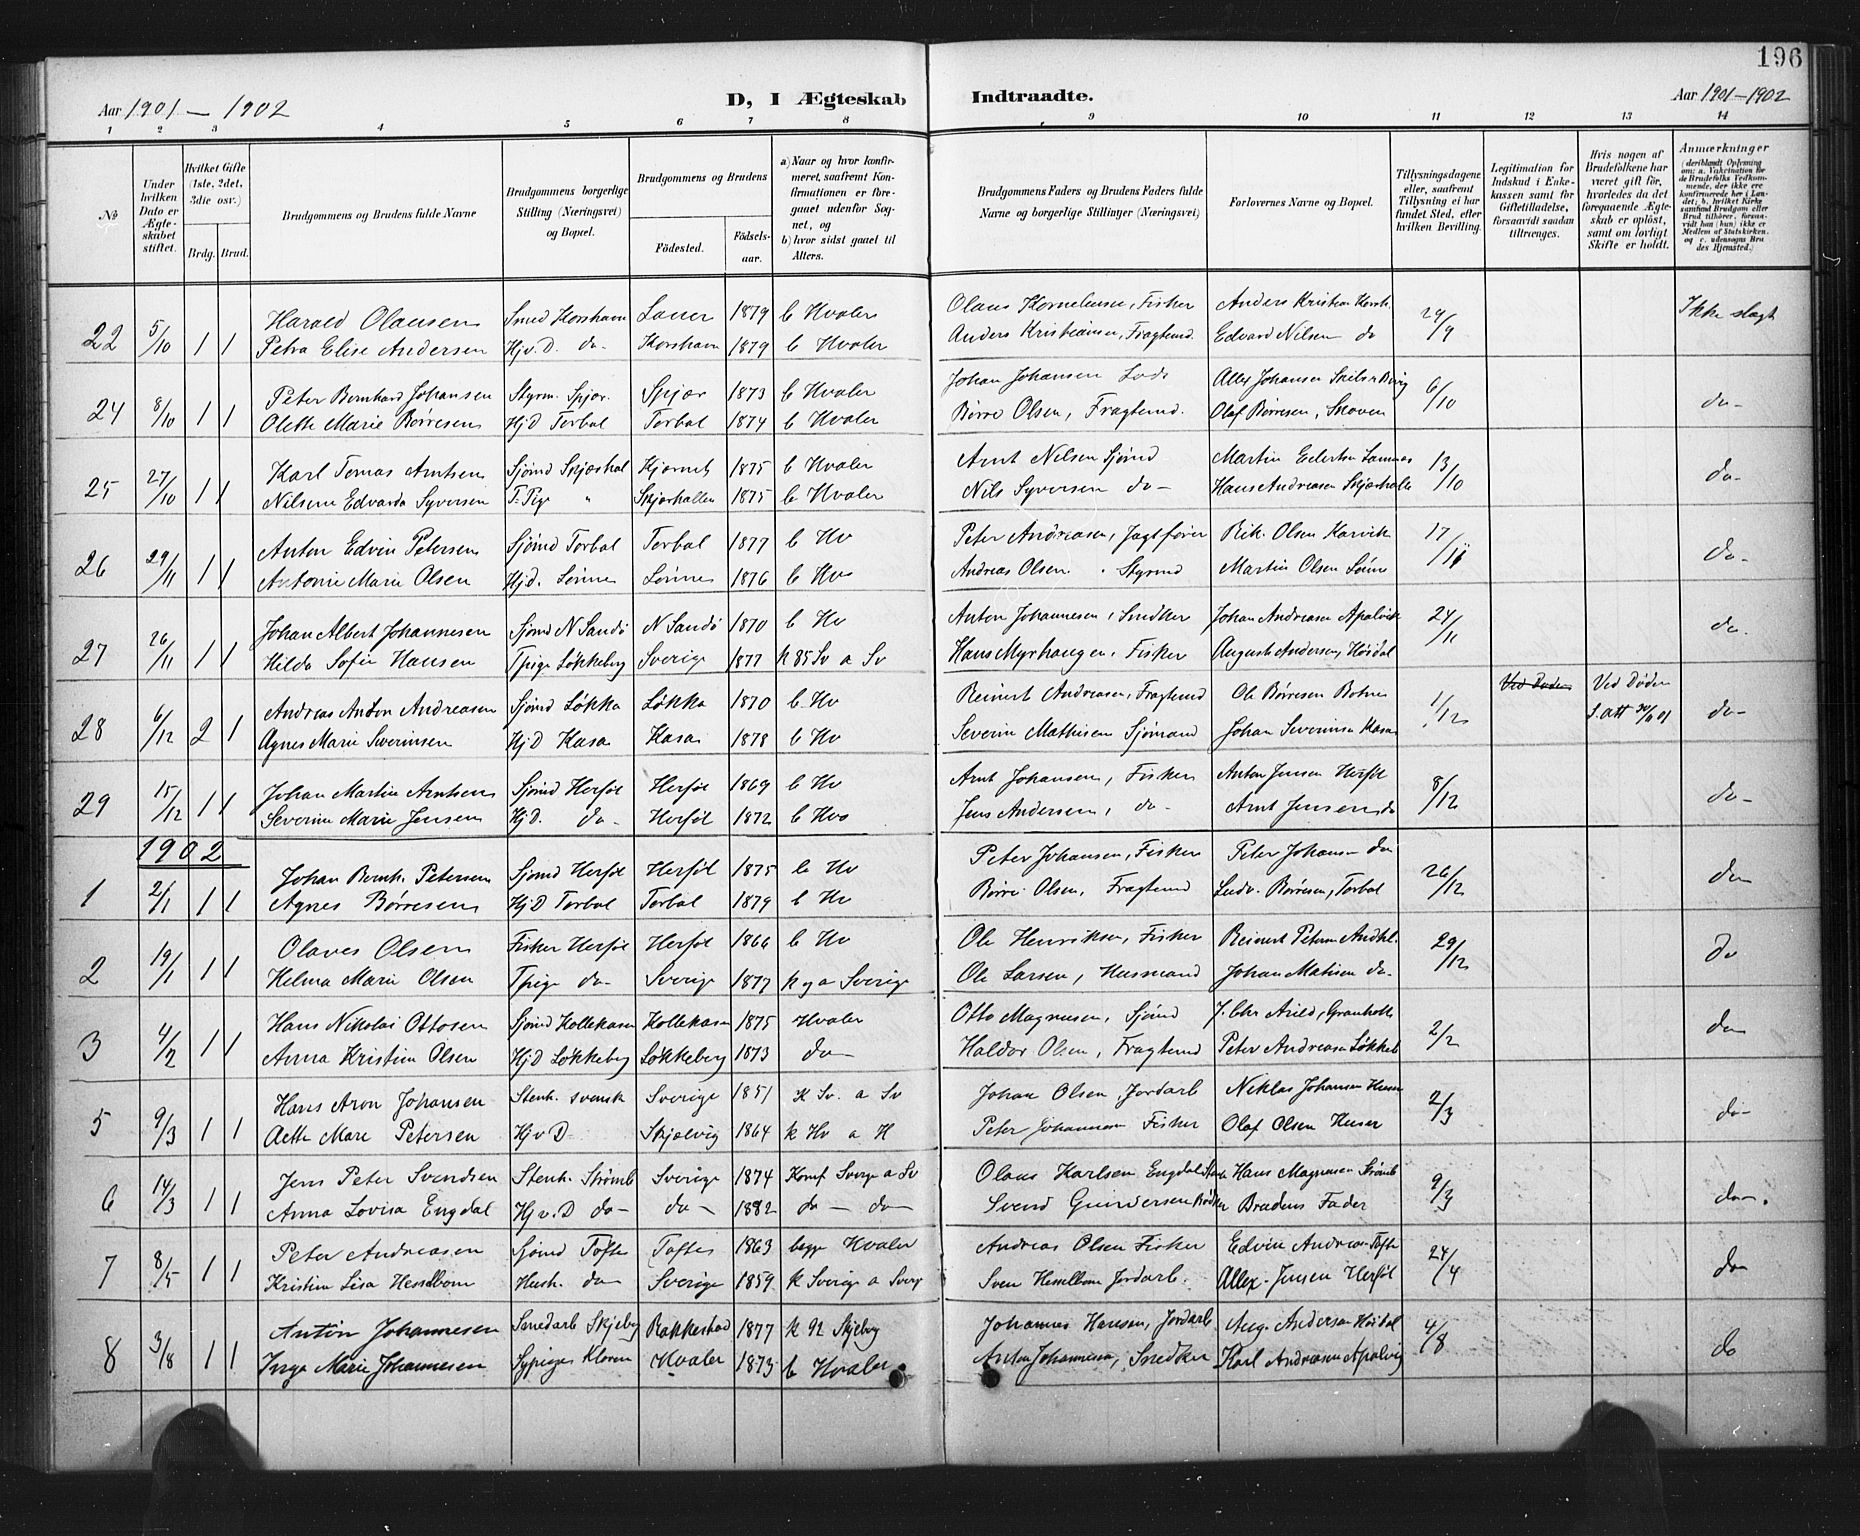 196
Aar 1901 — 1902
D, I Ægteskab Indtraadte.
Aar 1901–1902
1 2 3 4 5 6 7 8 9 10 11 12 13 14
No
Under hvilken Dato er Ægteskabet stiftet.
Hvilket Gifte (1ste, 2det, 3die osv.)
Brdg. Brud.
Brudgommens og Brudens fulde Navne
Brudgommens borgerlige Stilling (Næringsvei) og Bopæl.
Brudgommens og Brudens
Fødested. Fødselsaar.
a) Naar og hvor konfirmeret, saafremt Konfirmationen er foregaaet udenfor Sognet, og
b) hvor sidst gaaet til Alters.
Brudgommens Faders og Brudens Faders fulde Navne og borgerlige Stillinger (Næringsvei)
Forlovernes Navne og Bopæl.
Tillysningsdagene eller, saafremt Tillysning ei har fundet Sted, efter hvilken Bevilling.
Legitimation for Indskud i Enkekassen samt for Giftetilladelse, forsaavidt saadan tiltrænges.
Hvis nogen af Brudefolkene har været gift før, hvorledes da det foregaaende Ægteskab er opløst, samt om lovligt Skifte er holdt.
Anmærkninger (deriblandt Oplysning om: a. Vaccination for de Brudefolks Vedkommende, der ikke ere konfirmerede her i Landet; b. hvilket Kirkesamfund Brudgom eller Brud tilhører, forsaavidt han (hun) ikke er Medlem af Statskirken, og c. udensogns Brudes Hjemsted.)
22 5/10 1 1 Harald Olausen Smed Korshavn Lauer 1879 b Hvaler Olaus Kornelius, Fisker Anders Kristian Korsh. 29/9 Ikke slægt
Petra Elise Andersen Hjv.D. do Korshavn 1879 b Hvaler Anders Kristiansen, Fragtemd. Edvard Nilsen do
24 8/10 1 1 Peter Bernhard Johansen Styrm. Spjær Spjær 1873 b Hvaler Johan Johansen Lods Allex Johansen 6/10 do-
Olette Marie Børresen HjD Torbal Torbal 1874 b Hvaler Børre Olsen, Fragtemd. Olaf Børresen, Skoven
25 27/10 1 1 Karl Tomas Arntsen Sjømd Skjærhal 1875 b Hvaler Arnt Nilsen Sjømd Martin 13/10 do-
Nilsine Edvarda Syversen T. Pige " Skjærhallen 1875 b Hvaler Nils Syversen do- Hans Andreasen Skjærhalle
26 29/11 1 1 Anton Edvin Petersen Sjømd Torbal Torbal 1877 b Hv Peter Andreasen, Jagtfører Rik. Olsen Karvik 17/11 do-
Antonie Marie Olsen Hjd. Lønne Lønne 1876 b Hv Andreas Olsen Styrmd Martin Olsen Lønne
27 26/11 1 1 Johan Albert Johannesen Sjømd N Sandø N Sandø 1870 b Hv Anton Johannesen, Snedker Johan Andreasen Apalvik 24/11 do.
Hilda Sofie Hansen Tpige Løkkeberg Sverige 1877 k 85 Sv a Sv Hans Myrhaugen, Fisker August Andersen, Høidal
28 6/12 2 1 Andreas Anton Andreasen Sjømd Løkka Løkka 1870 b. Hv Reinert Andreasen, Fragtemd Ole Børresen Botne 1/12 Ved Døden Ved Døden do-
Agnes Marie Severinsen HjD Kasa Kasa 1878 b Hv Severin Mathisen Sjømand Johan Severinsen Kasa S.att
29 15/12 1 1 Johan Martin Arntsen Sjømd Herføl Herføl 1869 b Hv Arnt Johansen, Fisker Anton Jensen Herføl 8/12 do-
Severine Marie Jensen HjD. do- Herføl 1872 b Hv Jens Andersen, do- Arnt Jensen do
1902
1 2/1 1 1 Johan Bernh. Petersen Sjømd Herføl Herføl 1875 b Hv Peter Johansen, Fisker Peter Johansen do 26/12 do
Agnes Børresen HjD Torbal Torbal 1879 b Hv Børre Olsen, Fragtemd Ludv. Børresen, Torbal
2 19/1 1 1 Olaves Olsen Fisker Herføl Herføl 1866 b Hv Ole Henriksen, Fisker Reinert Petersen 29/12 do
Helma Marie Olsen Tpige do- Sverige 1877 k og a Sverige Ole Larsen, Husmand Johan Matisen do-
3 4/2 1 1 Hans Nikolai Ottosen Sjømd Kollekasen Kollekasen 1875 Hvaler Otto Magnusen, Sjømd J. Chr Arild, Granholt 2/2 do
Anna Kristine Olsen HjD Løkkeberg Løkkeberg 1873 do- Haldor Olsen, Fragtemd Peter Andreasen Løkkeb
5 9/3 1 1 Hans Aron Johansen Stenh. svensk Sverige 1851 k Sv. a Sv Johan Olsen, Jordarb Niklas Johansen Huser 2/3 do-
Aette Mare Petersen HjvD Skjelvig 1864 k Hv a H Peter Johannesen Fisker Olaf Olsen Huser
6 14/3 1 1 Jens Peter Svendsen Stenh. Strømb Sverige 1874 Konf Sverge a Sv Olaus Karlsen Engdal Stenh Hans Magnusen Strømb 9/3 do-.
Anna Lovisa Engdal Hjv.D do- do- 1882 do - do- Svend Gundersen Bødker Brudens Fader
7 8/5 1 1 Peter Andreasen Sjømd Tofte Tofte 1863 begge Hvaler Andreas Olsen Fisker Edvin Andreasen Tofte 24/4 do
Kristine Lisa Hesselbom Hush. do- Sverige 1859 k Sverige a Sverg Sven Hesselbom Jordarb. Allex. Jensen Herføl
8 3/8 1 1 Anton Johannesen Snedarb Skjeberg Rakkestad 1877 k 92 Skjeberg Johannes Hansen, Jordarb Aug. Andersen Høidal 4/8 do
Inga Marie Johannesen Sypiges Kloven Hvaler 1873 b Hvaler Anton Johannesen, Snedker Karl Andreasen Apalvig